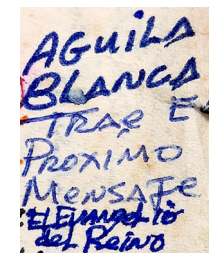 AGUILA
BLANCA
TRAE E
PROXIMO
MENSAJE
El Evangelio
del Reino